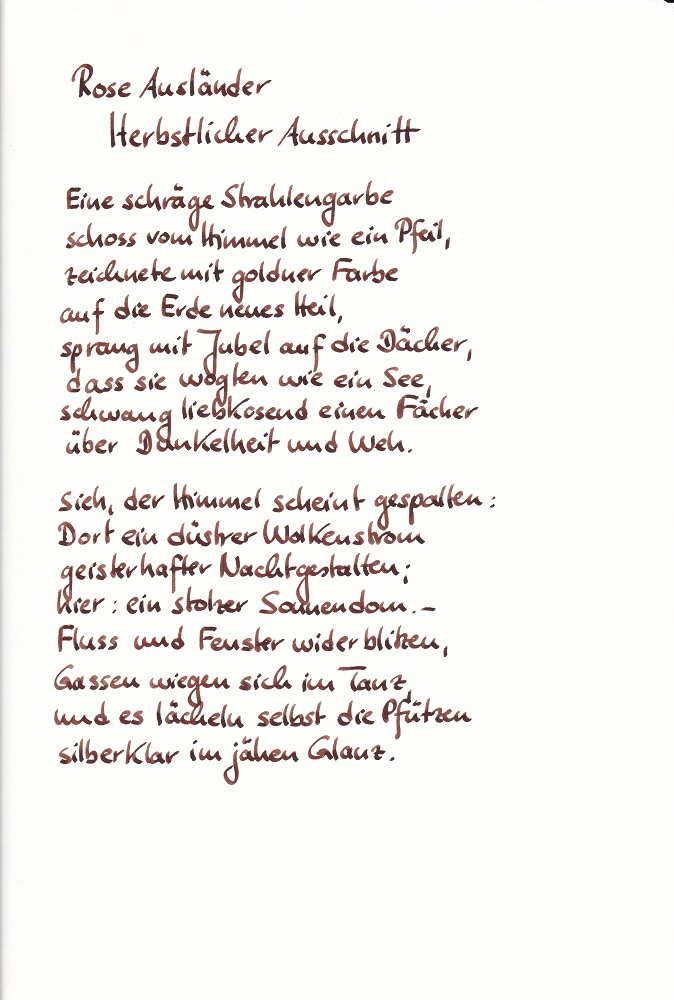 Rose Ausländer
Herbstlicher Ausschnitt
Eine schräge Strahlengarbe
schoss vom Himmel wie ein Pfeil,
zeichnete mit goldner Farbe
auf die Erde neues Heil,
sprang mit Jubel auf die Dächer,
dass sie wogten wie ein See,
schwang liebkosend einen Fächer
über Dunkelheit und Weh.
Sieh, der Himmel scheint gespalten:
Dort ein düstrer Wolkenstrom
geisterhafter Nachtgestalten;
hier: ein stolzer Sonnendom.–
Fluss und Fenster widerblitzen,
Gassen wiegen sich im Tanz,
und es lächeln selbst die Pfützen
silberklar im jähen Glanz.